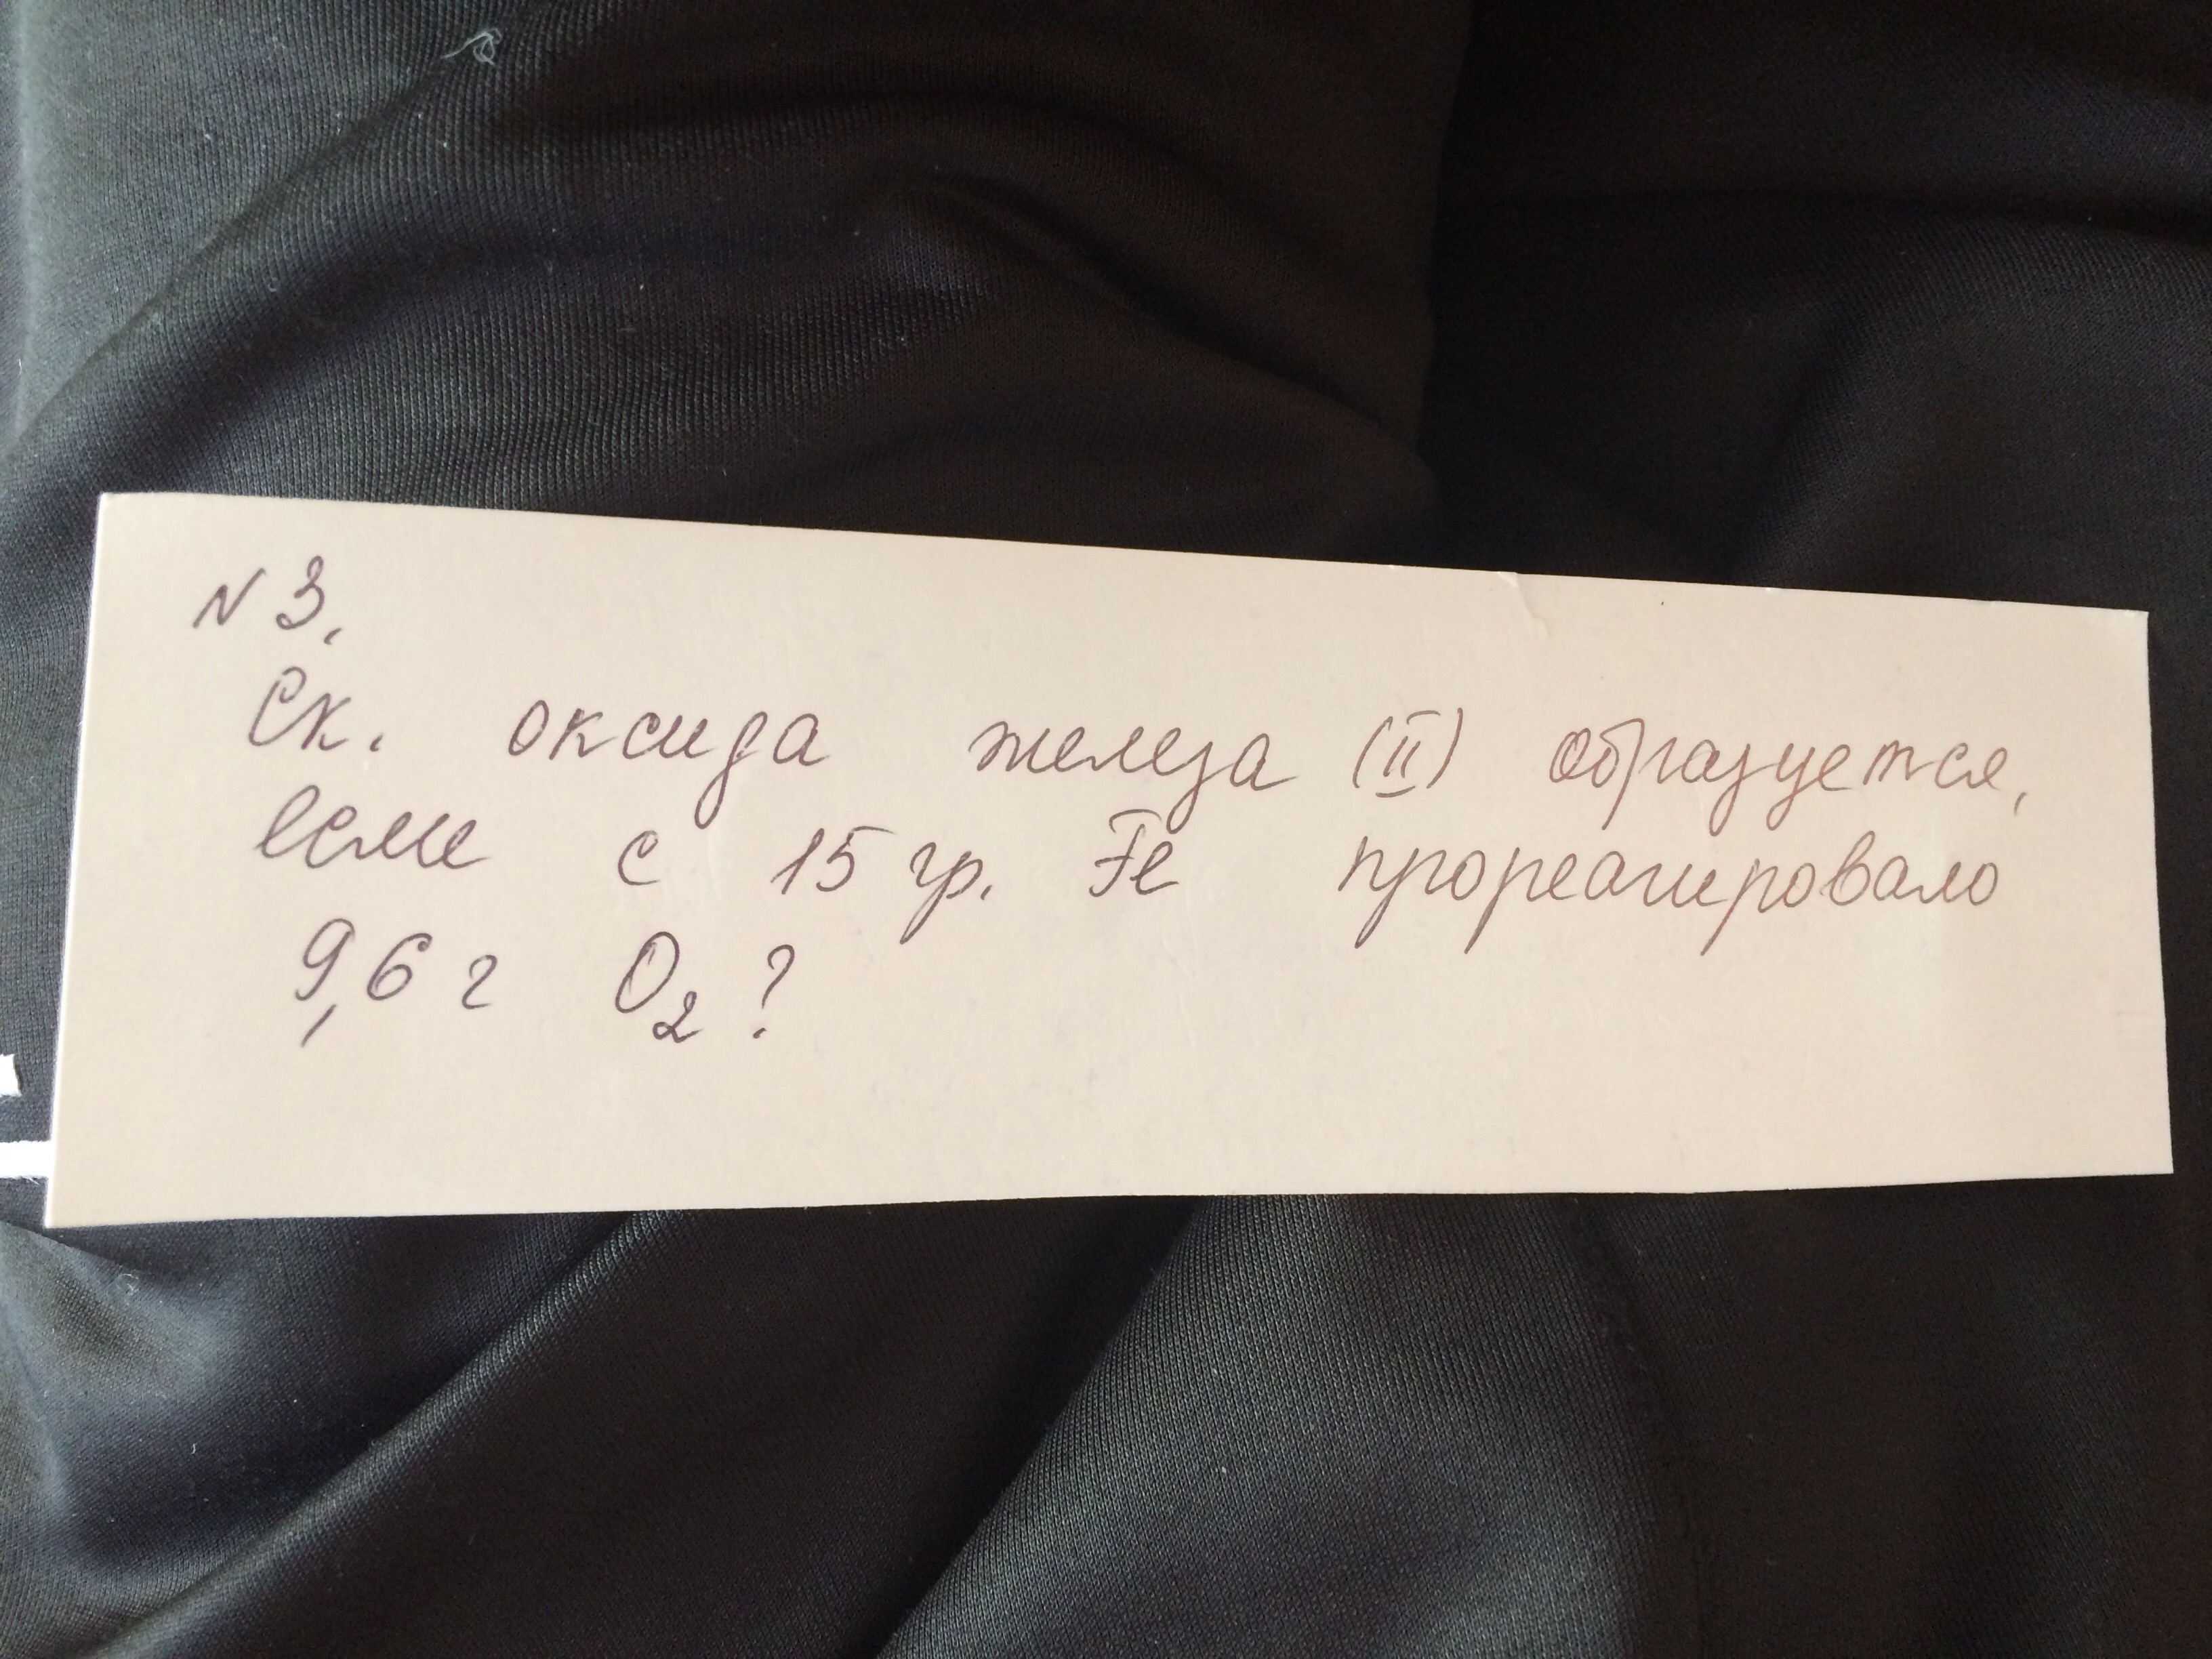 N 3.
Ск. оксида железа (II) образуется,
если с 15 гр. Fe прореагировало
9,6 г O₂?